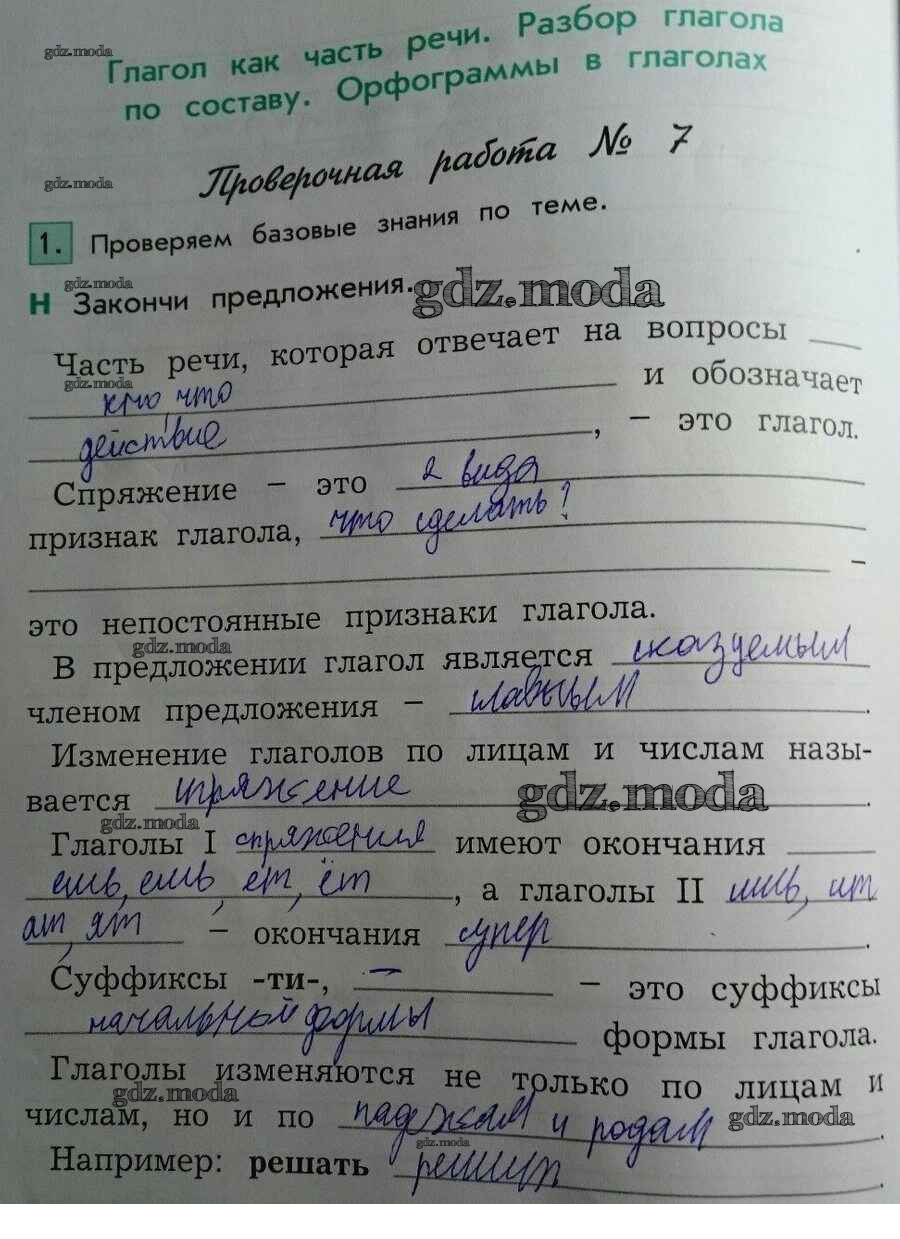 gdz.moda
Глагол как часть речи. Разбор глагола
по составу. Орфограммы в глаголах
Проверочная работа № 7
gdz.moda
1. Проверяем базовые знания по теме.
gdz.moda
Н Закончи предложения.
gdz.moda
Часть речи, которая отвечает на вопросы
gdz.moda
кто, что и обозначает
действие, – это глагол.
Спряжение – это 2 вида
признак глагола, что сделать?
–
это непостоянные признаки глагола.
gdz.moda
В предложении глагол является сказуемым
членом предложения – главным.
Изменение глаголов по лицам и числам назы-
вается спряжение.
gdz.moda
gdz.moda
Глаголы I спряжения имеют окончания
ешь, ешь, ет, ёт, а глаголы II ишь, ит
ат, ят – окончания супер.
Суффиксы -ти-, — – это суффиксы
начальной формы формы глагола.
Глаголы изменяются не только по лицам и
gdz.moda
числам, но и по падежам и родам.
gdz.moda
gdz.moda
Например: решать решит.